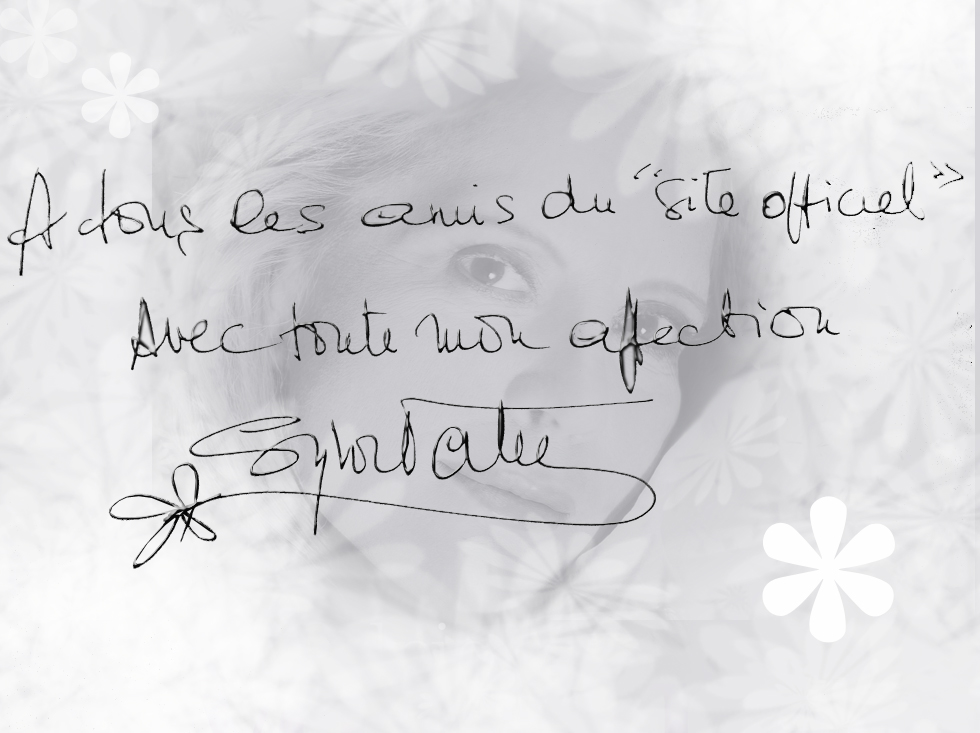 A tous les amis du "site officiel"
Avec toute mon affection